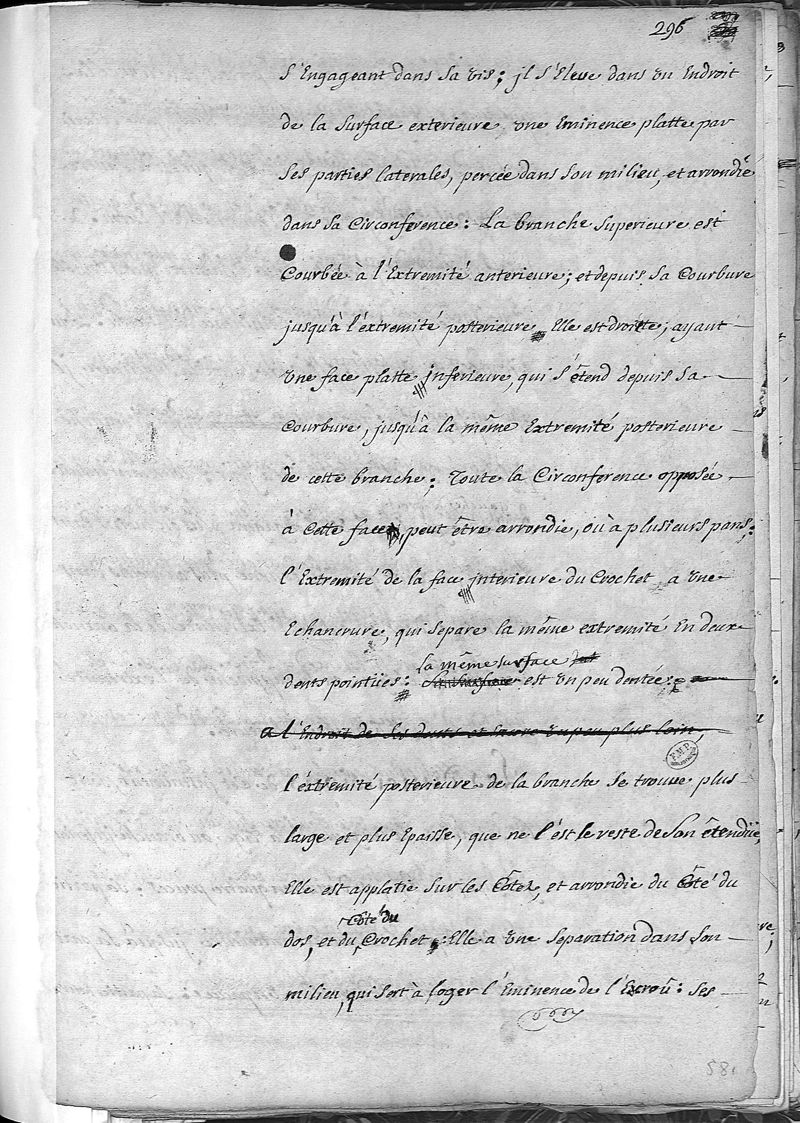 296
s'Engageant dans sa vis; jl s'Eleve dans un Endroit
de la surface exterieure une Eminence platte par
ses parties laterales, percée dans son milieu, et arrondie
dans sa Circonference: La branche superieure est
Courbée à l'Extremité anterieure; et depuis sa Courbure
jusqu'à l'éxtremité posterieure Elle est droitte, ayant
une face platte jnferieure, qui s'étend depuis sa
Courbure, jusqu'à la même Extremité posterieure
de cette branche: Toute la Circonference opposée
à Cette face, peut être arrondie, où à plusieurs pans:
l'Extremité de la face jnterieure du Crochet, a une
Echancrure, qui separe la même extremité En deux
la même surface
dents pointües: est un peu dentée:
a l'Endroit de ses dents et encore un peu plus loin,
l'éxtremité posterieure de la branche se trouve plus
large et plus Epaisse, que ne l'est le reste de son étendüe,
Elle est applatie sur les Côtez, et arrondie du Côté du
Côté du
dos, et du Crochet: Elle a une separation dans son
milieu, qui sert à loger l'Eminence de l'Ecroû: ses
F.M.P.
58